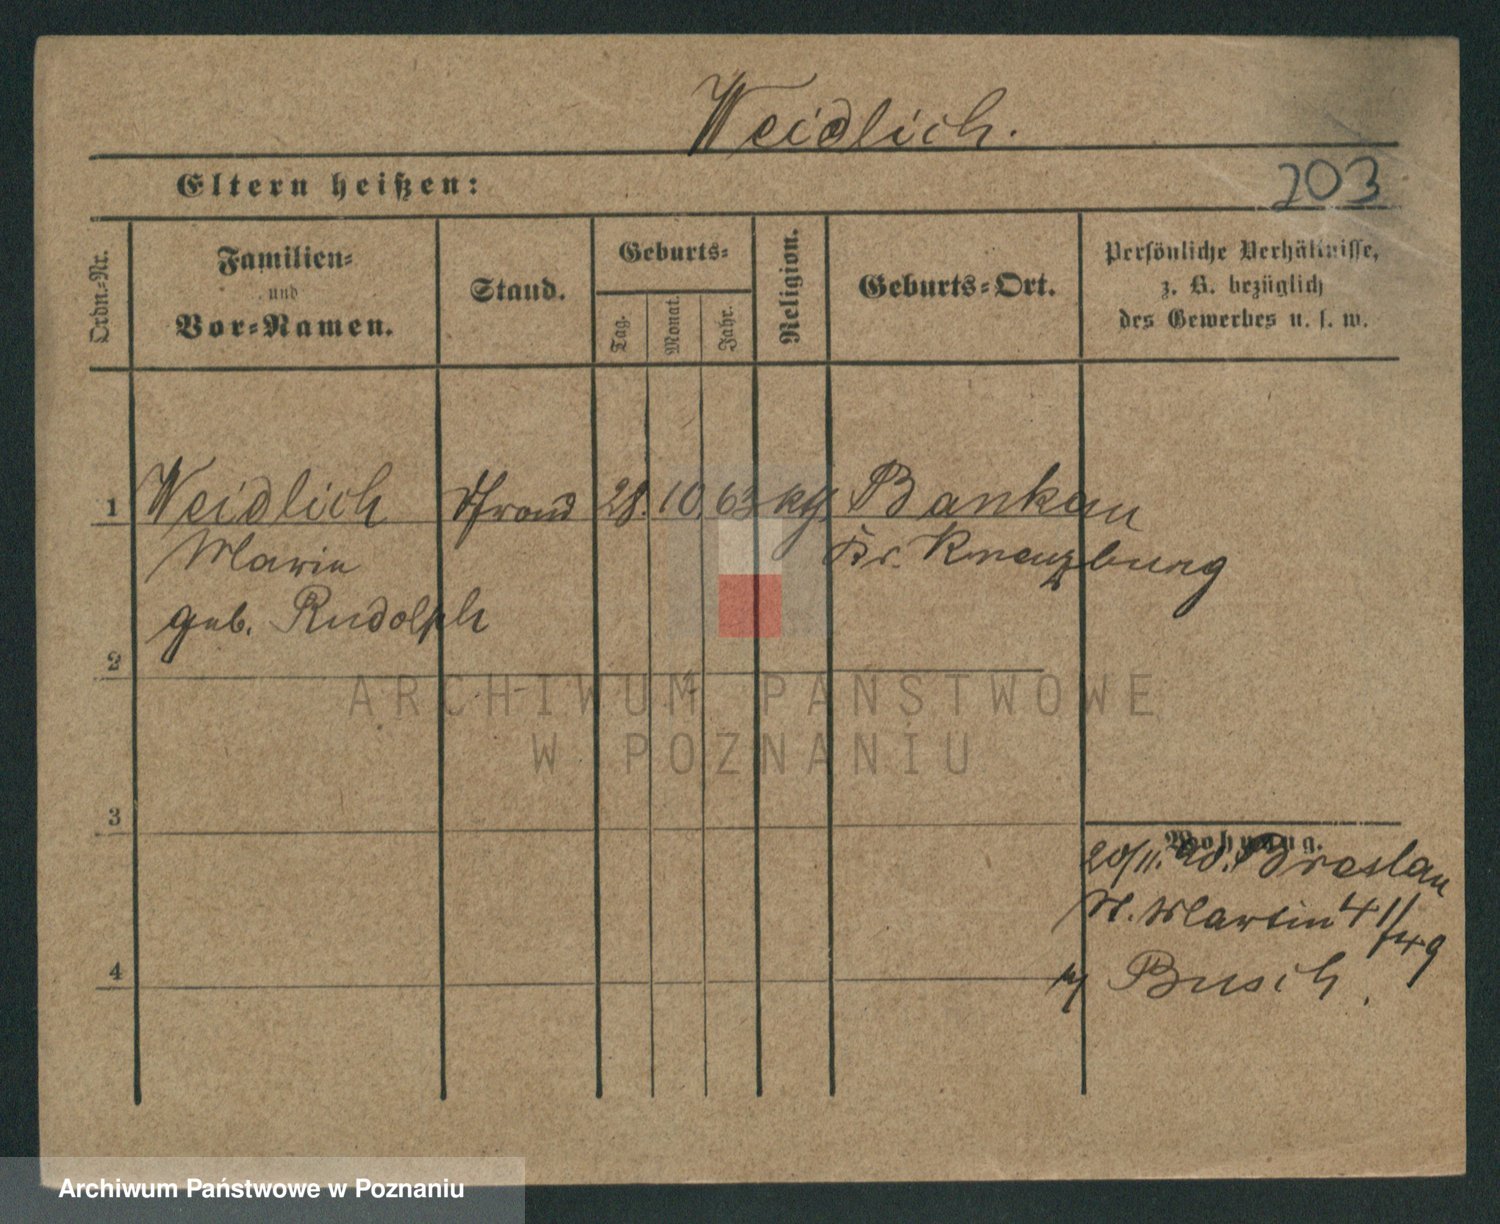 Weidlich.
Eltern heißen:
203
Ordn.-Nr.
Familien-
und
Vor-Namen.
Stand.
Geburts-
Tag.
Monat.
Jahr.
Religion.
Geburts-Ort.
Persönliche Verhältnisse,
z. B. bezüglich
des Gewerbes u. s. w.
1 Weidlich 28. 10. 63 Bankau
Marie Kr. Kreuzburg
geb. Rudolph
2
ARCHIWUM PAŃSTWOWE
W POZNANIU
3
Wohnung.
20/11. Breslau
St. Martin 41/49
4
Busch.
Archiwum Państwowe w Poznaniu